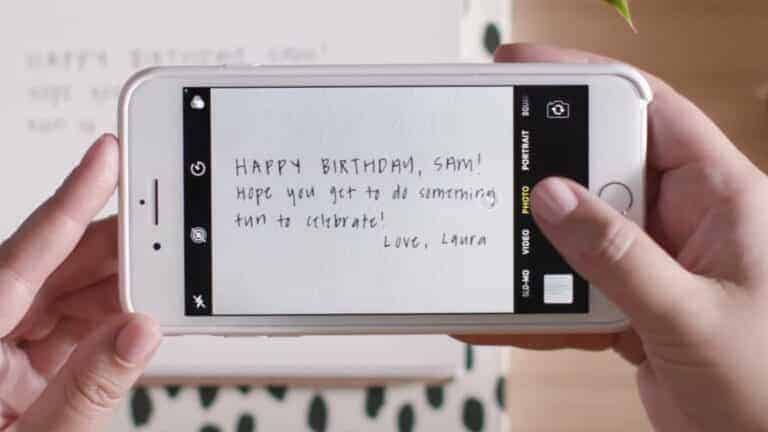 HAPPY BIRTHDAY, SAM!
HOPE YOU GET TO DO SOMETHING
FUN TO CELEBRATE!
LOVE, LAURA
SLO-MO
VIDEO
PHOTO
PORTRAIT